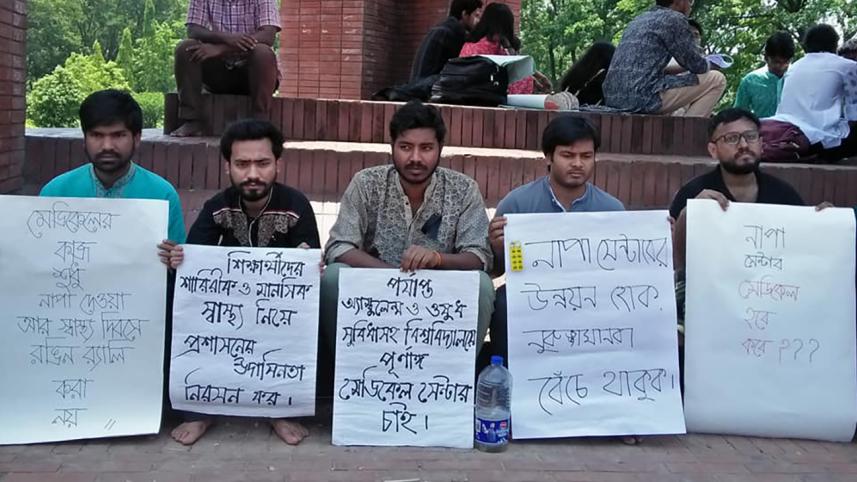 মেডিকেলের
কাজ
শুধু
নাপা দেওয়া
আর স্বাস্থ্য দিবসে
রঙিন র‍্যালি
করা
নয় "
শিক্ষার্থীদের
শারিরীক ও মানসিক
স্বাস্থ্য নিয়ে
প্রশাসনের
উদাসিনতা
নিরসন কর।
পর্যাপ্ত
অ্যাম্বুলেন্স ও ওষুধ
সুবিধাসহ বিশ্ববিদ্যালয়ে
পূর্ণাঙ্গ
মেডিকেল সেন্টার
চাই।
নাপা সেন্টারের
উন্নয়ন হোক,
বেঁচে থাকুক।
নাপা
সেন্টার
মেডিকেল
হবে
কবে ???